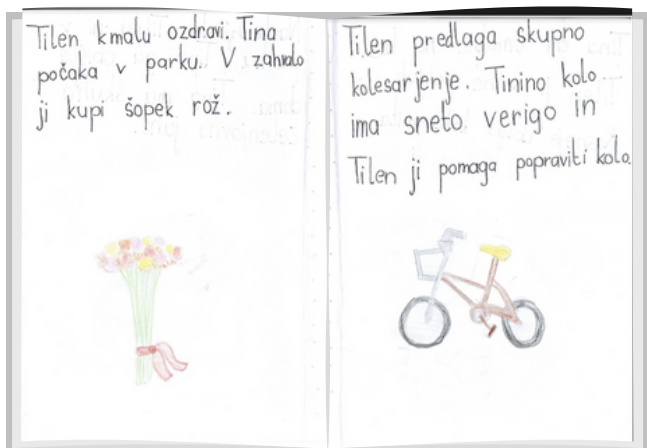 Tilen kmalu ozdravi. Tina
počaka v parku. V zahvalo
ji kupi šopek rož.
Tilen predlaga skupno
kolesarjenje. Tinino kolo
ima sneto verigo in
Tilen ji pomaga popraviti kolo.